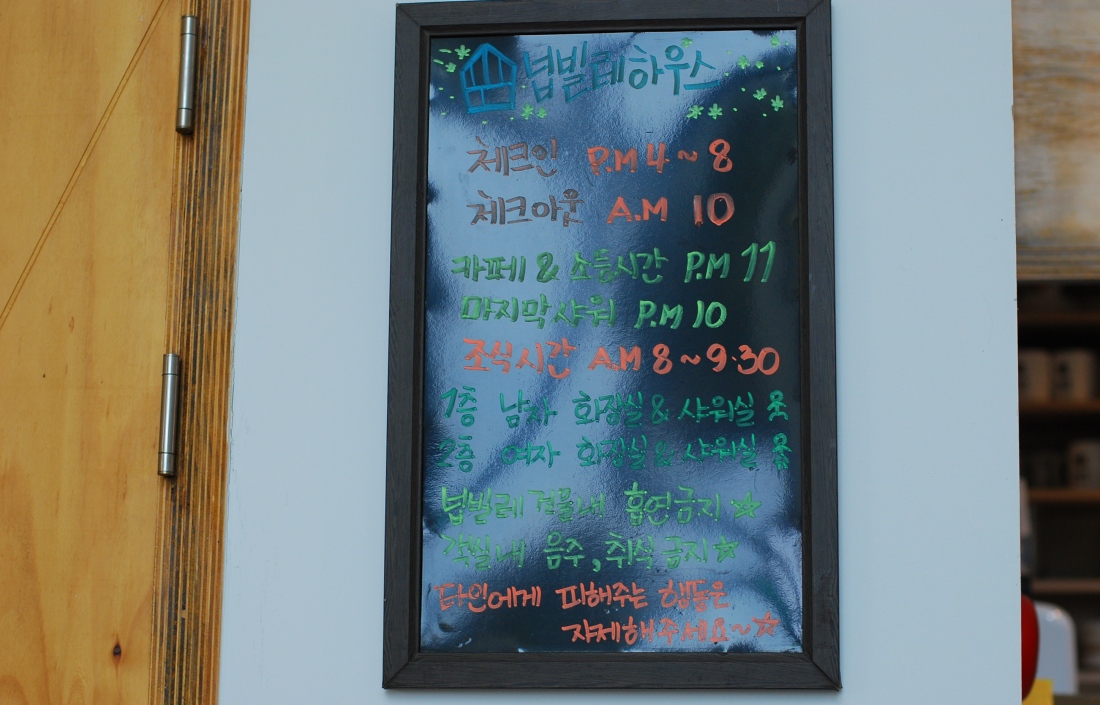 넙빌레하우스
체크인 P.M 4 ~ 8
체크아웃 A.M 10
카페 & 소등시간 P.M 11
마지막샤워 P.M 10
조식시간 A.M 8 ~ 9:30
1층 남자 화장실 & 샤워실
2층 여자 화장실 & 샤워실
넙빌레 건물내 흡연금지☆
객실내 음주, 취식금지☆
타인에게 피해주는 행동은
자제해주세요~☆